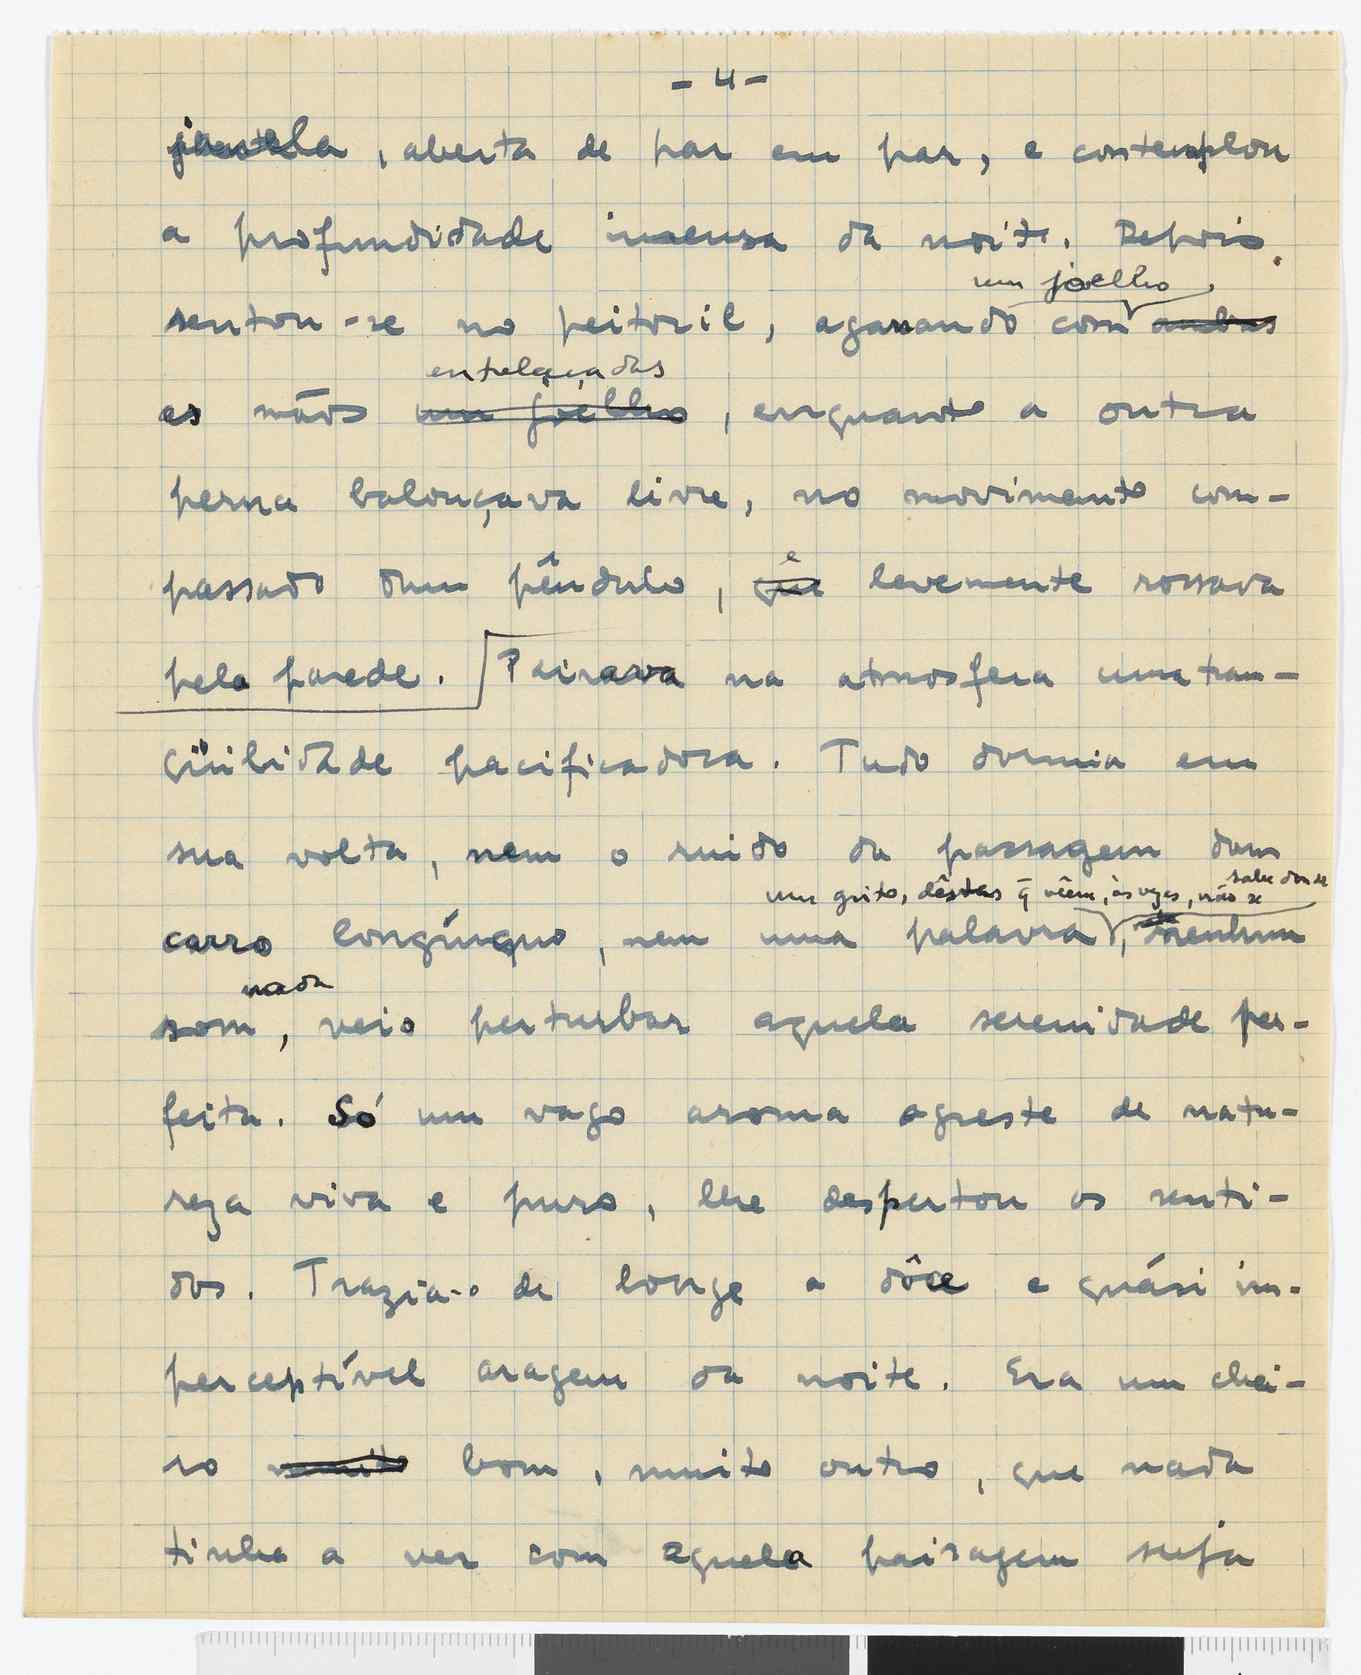 - 4 -
janela, aberta de par em par, e contemplou
a profundidade imensa da noite. Depois,
um joelho,
sentou-se no peitoril, agarrando com ambas
entrelaçadas
as mãos um joelho, enquanto a outra
perna balouçava livre, no movimento com-
passado dum pêndulo,
e
que levemente rossava
pela parede. Pairava na atmosfera uma tran-
qüilidade pacificadora. Tudo dormia em
sua volta, nem o ruido da passagem dum
um grito, dêstes q̃ vêem, às vezes, não se sabe donde
carro longínquo, nem uma palavra, nenhum
nada
som, veio perturbar aquela serenidade per-
feita. Só um vago aroma agreste de natu-
reza viva e pura, lhe despertou os senti-
dos. Trazia-o de longe a dôce e quási im-
perceptível aragem da noite. Era um chei-
ro muito bom, muito outro, que nada
tinha a ver com aquela paisagem suja